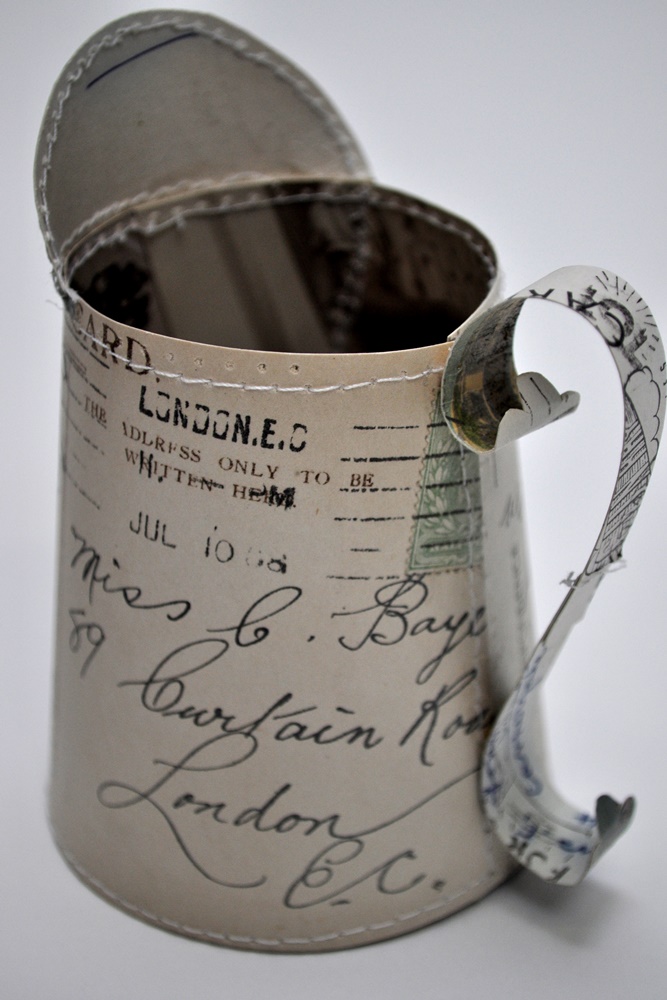 CARD.
LONDON.E.C
THE ADDRESS ONLY TO BE
WRITTEN HERE.
JUL 10 08
Miss C. Baye
89
Curtain Roa
London
E.C.